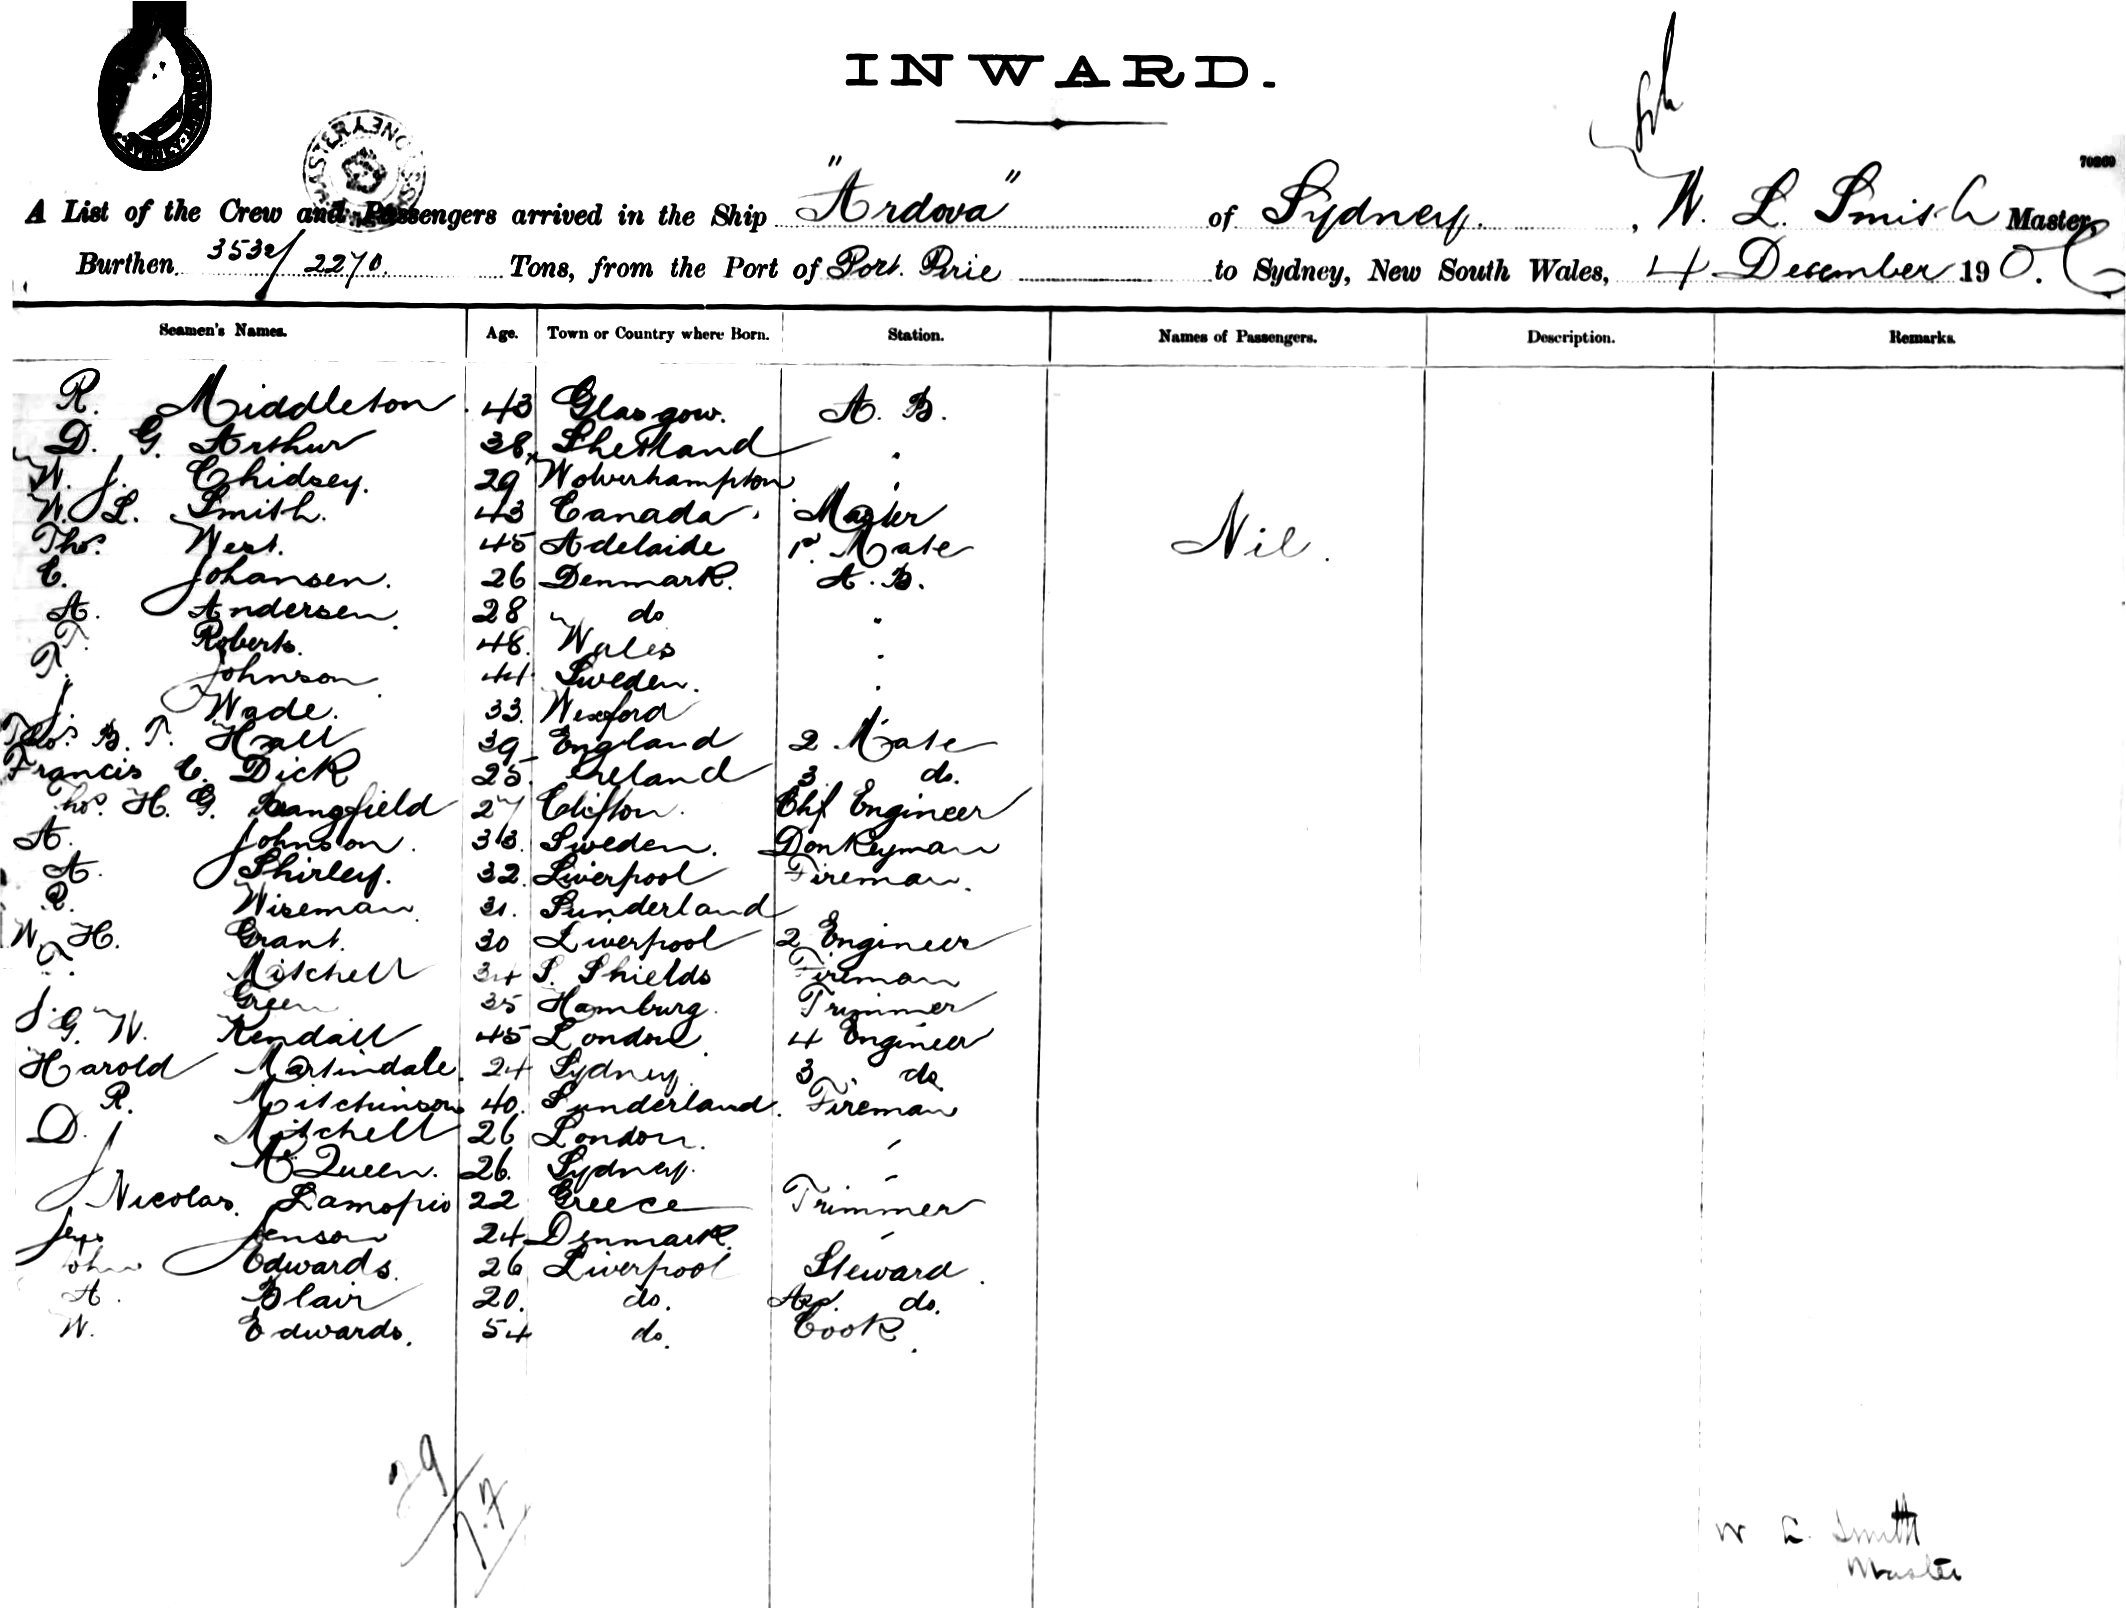 INWARD.
70269
A List of the Crew and Passengers arrived in the Ship "Ardova" of Sydney, W. L. Smith Master,
Burthen 3532/2270 Tons, from the Port of Port Pirie to Sydney, New South Wales, 4 December 190
Seamen's Names. Age. Town or Country where Born. Station. Names of Passengers. Description. Remarks.
R. Middleton 43 Glasgow. A. B.
D. G. Arthur 38 Shetland "
W. J. Chidsey. 29 Wolverhampton "
W. L. Smith. 43 Canada. Master
Nil.
Thos. West. 45 Adelaide 1st Mate
C. Johansen. 26 Denmark. A. B.
A. Andersen. 28 " do "
T. Roberts. 48. Wales "
T. Johnson 44 Sweden. "
J. Wade. 33. Wexford "
Thos. B. T. Hall 39 England 2 Mate
Francis C. Dick 25 Ireland 3 do.
Thos. H. G. Langfield 27 Clifton. Chf Engineer
A. Johnson. 33. Sweden. Donkeyman
A. Shirley. 32. Liverpool Fireman.
R. Wiseman. 31. Sunderland
W. H. Grant. 30 Liverpool 2 Engineer
T. Mitchell 34 S. Shields Fireman
J. Green 35 Hamburg. Trimmer
G. W. Kendall 45 London. 4 Engineer
Harold Martindale. 24 Sydney. 3 do
R. Mitchinson 40. Sunderland. Fireman
D. J. Mitchell 26 London. "
J. McQueen. 26. Sydney. "
Nicolas. Lamopio 22 Greece Trimmer
Jenson 24 Denmark. "
John Edwards. 26 Liverpool Steward.
A. Blair 20. do. do.
W. Edwards. 54 do. Cook.
29/
W L. Smith
Master